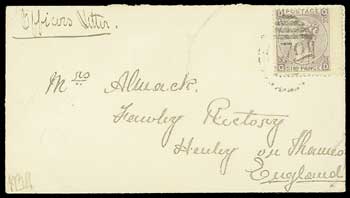 Officers Letter.
Mrs Almack.
Fawley Rectory
Henley on Thames
England
SIX PENCE